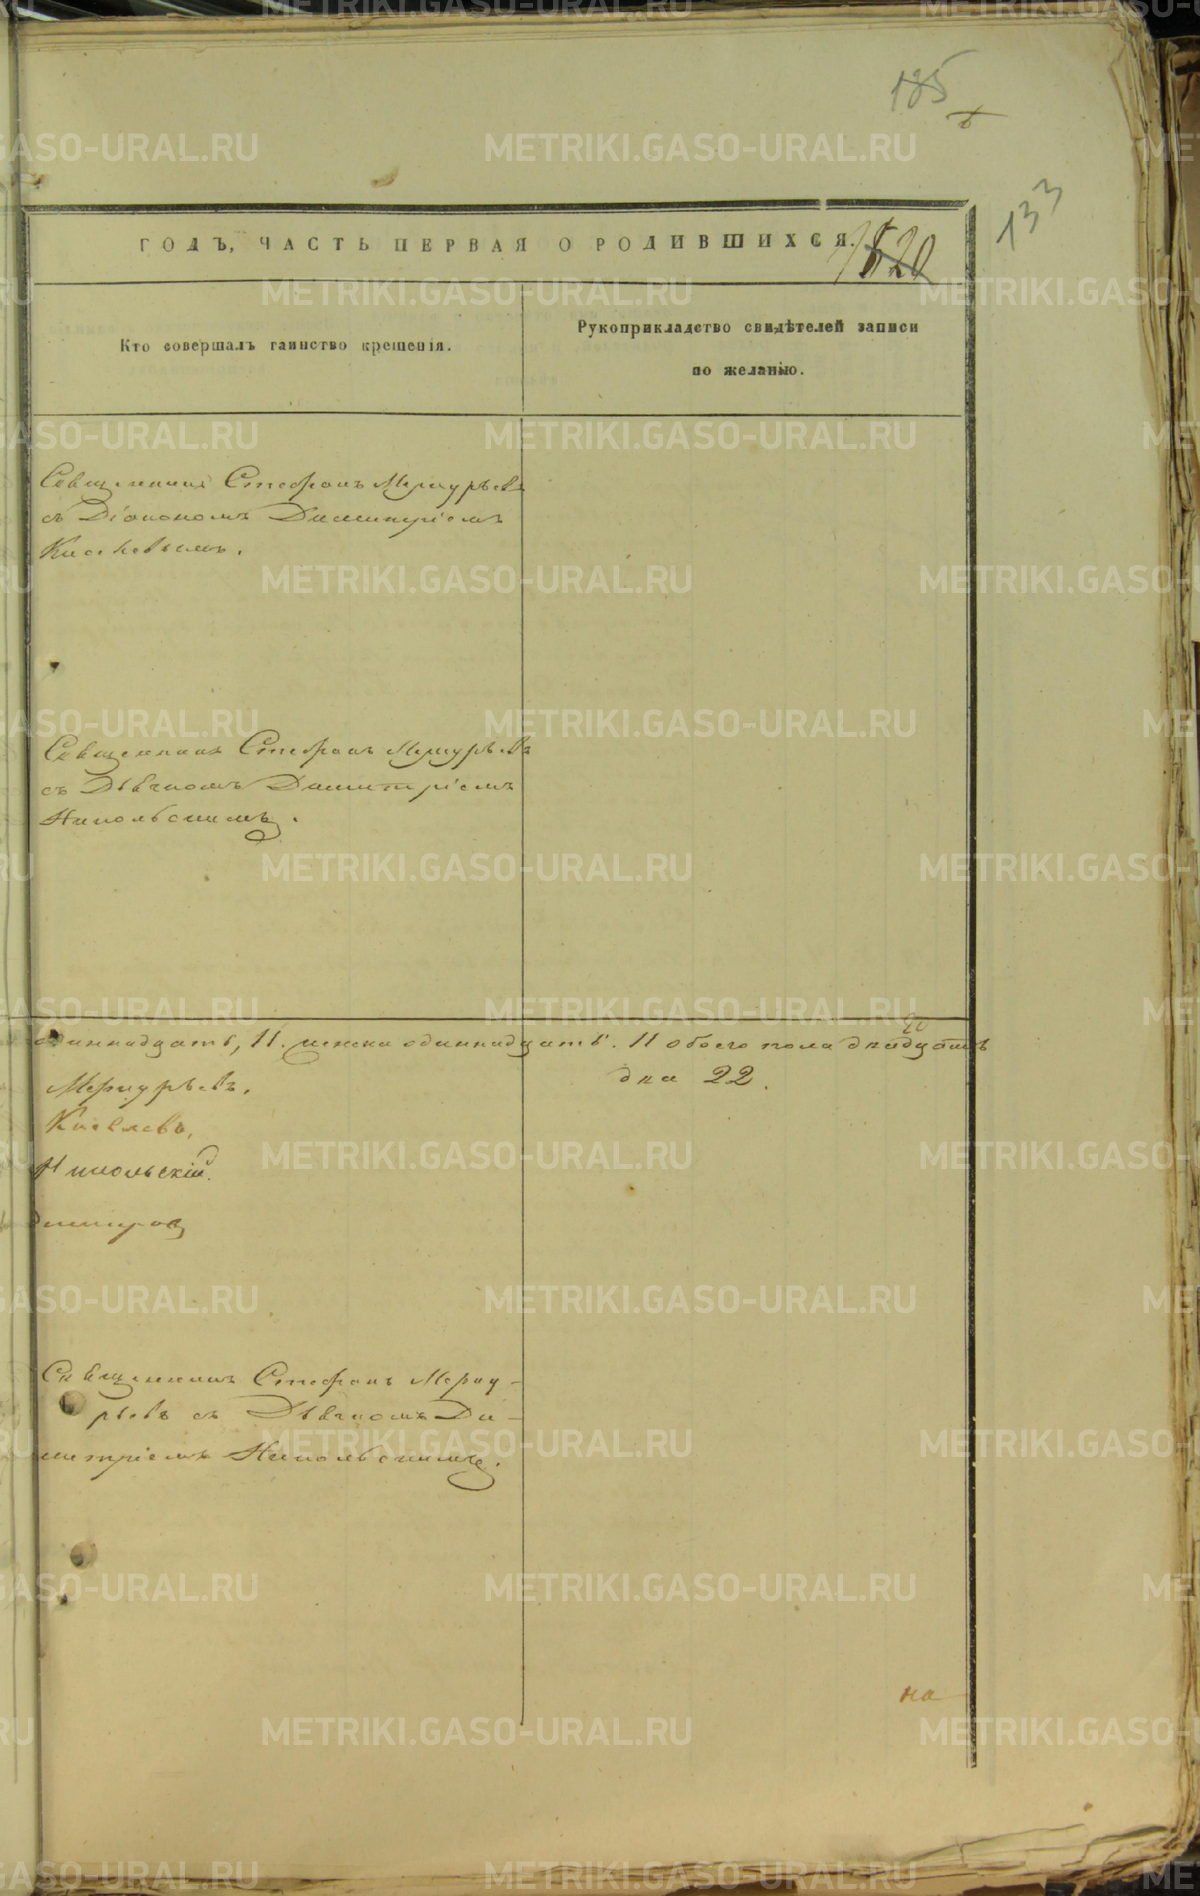 185
133
ГОДЪ, ЧАСТЬ ПЕРВАЯ О РОДИВШИХСЯ.
1820
Кто совершалъ таинство крещенія.
Рукоприкладство свидѣтелей записи
по желанію.
Священникъ Стефанъ Меркурьевъ
съ Діакономъ Димитріемъ
Киселевымъ.
Священникъ Стефанъ Меркурьевъ
съ Дьячкомъ Димитріемъ
Никольскимъ.
одиннадцать, 11. женска одиннадцать. 11 обоего пола двадцать
два 22.
Меркурьевъ.
Киселевъ,
Никольскій.
Священникъ Стефанъ Мерку-
рьевъ съ Дьячкомъ Ди-
митріемъ Никольскимъ.
на
METRIKI.GASO-URAL.RU